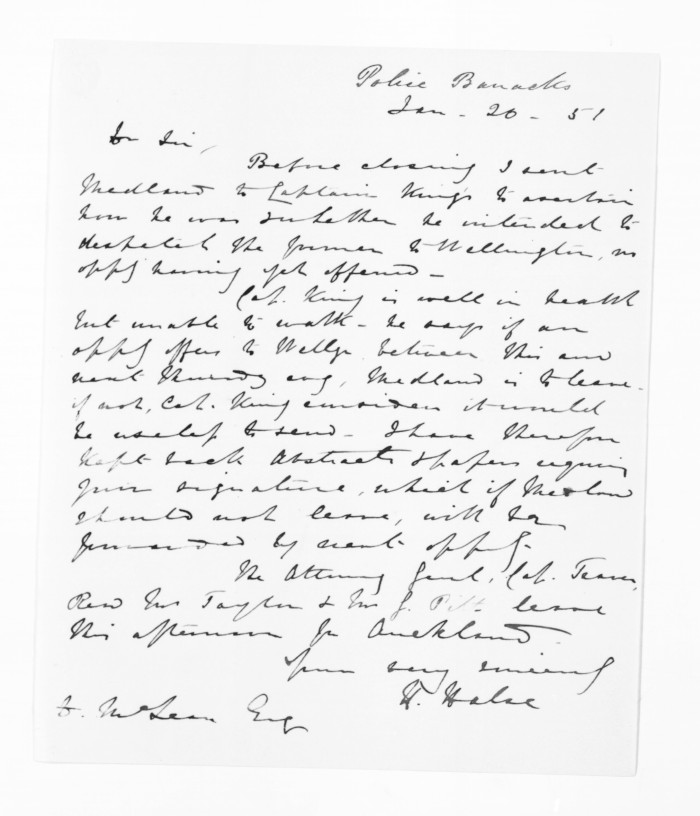 Police Barracks
Jan - 20 - 51
Dr Sir,
Before closing I sent
Medland to Captain King's to ascertain
how he was & whether he intended to
despatch the former to Wellington, no
oppy having yet offered -
Cap. King is well in health
but unable to walk - he says if an
oppy offers to Wellgn between this and
next Thursday evg, Medland is to leave -
if not, Cap. King considers it would
be useless to send - I have therefore
kept back Abstracts & papers requiring
your signature, which if Medland
should not leave, will be
forwarded by next oppy -
The Attorney Genl, Cap.
Revd Mr Taylor & Mr J. Pitt leave
this afternoon for Auckland -
Yours very sincerely
H. Halse
D. McLean Esq